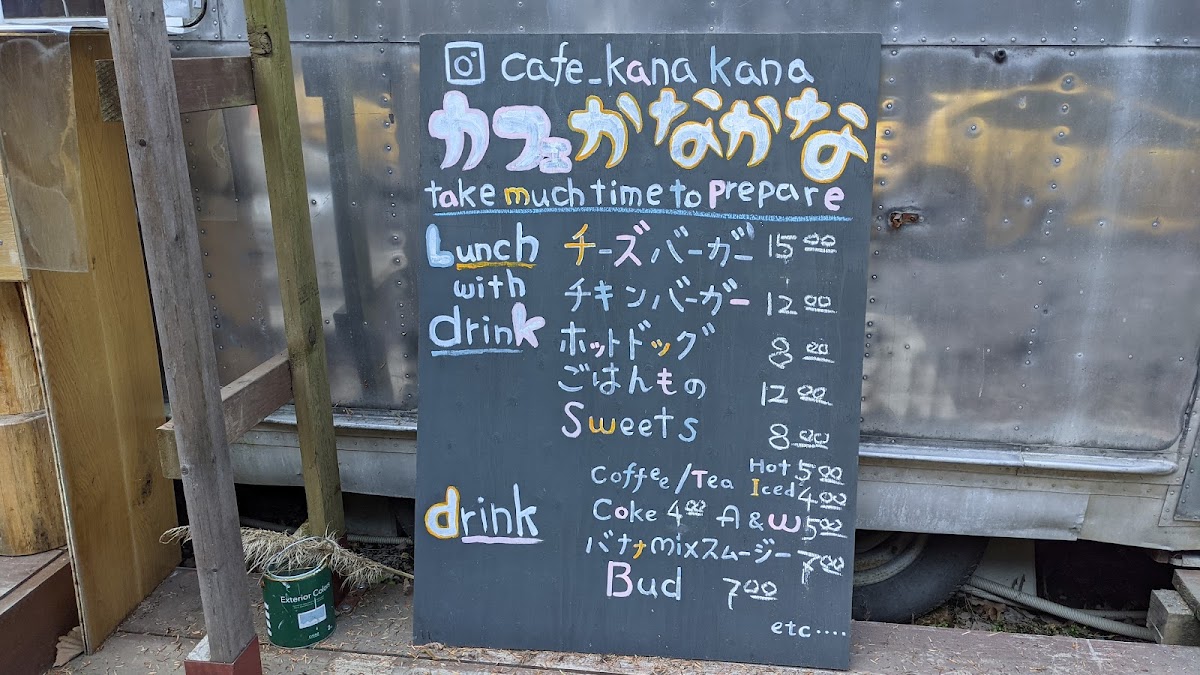 cafe_kana kana
カフェかなかな
take much time to prepare
Lunch with drink
チーズバーガー 15 00
チキンバーガー 12 00
ホットドッグ 8 00
ごはんもの 12 00
Sweets 8 00
drink
Coffee/Tea Hot 5 00
Iced 4 00
Coke 4 00 A&W 5 00
バナナmixスムージー 7 00
Bud 7 00
etc....
Exterior Color